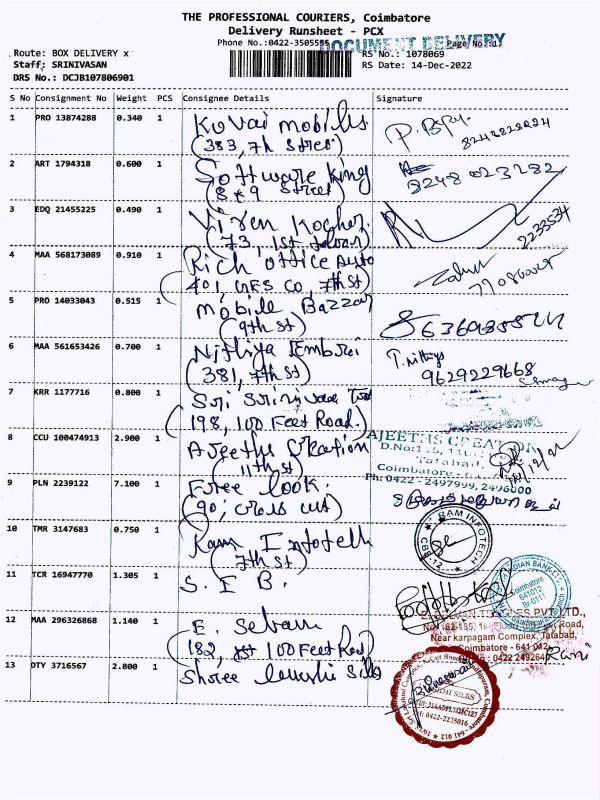 THE PROFESSIONAL COURIERS, Coimbatore
Delivery Runsheet - PCX
Phone No.:0422-3505555
DOCUMENT DELIVERY
Page No.:17
Route: BOX DELIVERY x
RS No.: 1078069
Staff: SRINIVASAN
RS Date: 14-Dec-2022
DRS No.: DCJB107806901
S No Consignment No Weight PCS Consignee Details Signature
1 PRO 13874288 0.340 1 Kovai mobiles
(383, 7th Street)
2 ART 1794318 0.600 1 Software King
(8 & 9 Street)
8248 023282
3 EDQ 21455225 0.490 1 Viren Kocher
(73, 1st
2233534
4 MAA 568173089 0.910 1 Rich office Auto
(401, GFS Co, 7th St)
5 PRO 14033043 0.515 1 Mobile Bazzar
(9th St)
6 MAA 561653426 0.700 1 Nithiya Embroi
(381, 7th St)
9629229668
7 KRR 1177716 0.800 1 Sri Srinivasa Trad
(198, 100 Feet Road.)
8 CCU 100474913 2.900 1 Ajeeths Creation
(11th St)
AJEETHS CREATION
Tatabad,
Coimbatore-
Ph: 0422 - 2497999, 2496000
14/12/22
9 PLN 2239122 7.100 1 Free look.
(90, cross cut)
10 TMR 3147683 0.750 1 Ram Infotech
(7th St)
RAM INFOTECH
CBE-12
11 TCR 16947770 1.305 1 S. I B.
INDIAN BANK
Coimbatore
641012
12 MAA 296326868 1.140 1 E. Sebam
(182, 100 Feet Road)
PVT. LTD.,
Near karpagam Complex, Tatabad,
Coimbatore - 641 012
Rani
13 OTY 3716567 2.800 1 Shree Silks
SILKS
0422-2235016